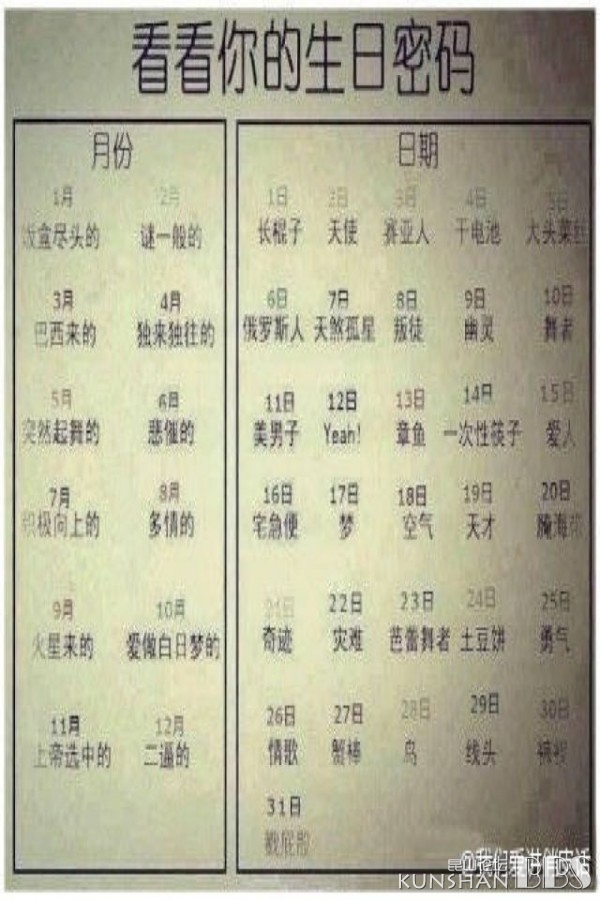 看看你的生日密码
月份
1月 2月
盒尽头的 谜一般的
3月 4月
巴西来的 独来独往的
5月 6月
突然起舞的 悲催的
7月 8月
积极向上的 多情的
9月 10月
火星来的 爱做白日梦的
11月 12月
上帝选中的 二逼的
日期
1日 2日 3日 4日 5日
长棍子 天使 赛亚人 干电池 大头菜
6日 7日 8日 9日 10日
俄罗斯人 天煞孤星 叛徒 幽灵 舞者
11日 12日 13日 14日 15日
美男子 Yeah! 章鱼 一次性筷子 爱人
16日 17日 18日 19日 20日
宅急便 梦 空气 天才 腌海
21日 22日 23日 24日 25日
奇迹 灾难 芭蕾舞者 土豆饼 勇气
26日 27日 28日 29日 30日
情歌 蟹棒 鸟 线头
31日
戳屁股
KUNSHAN BBS